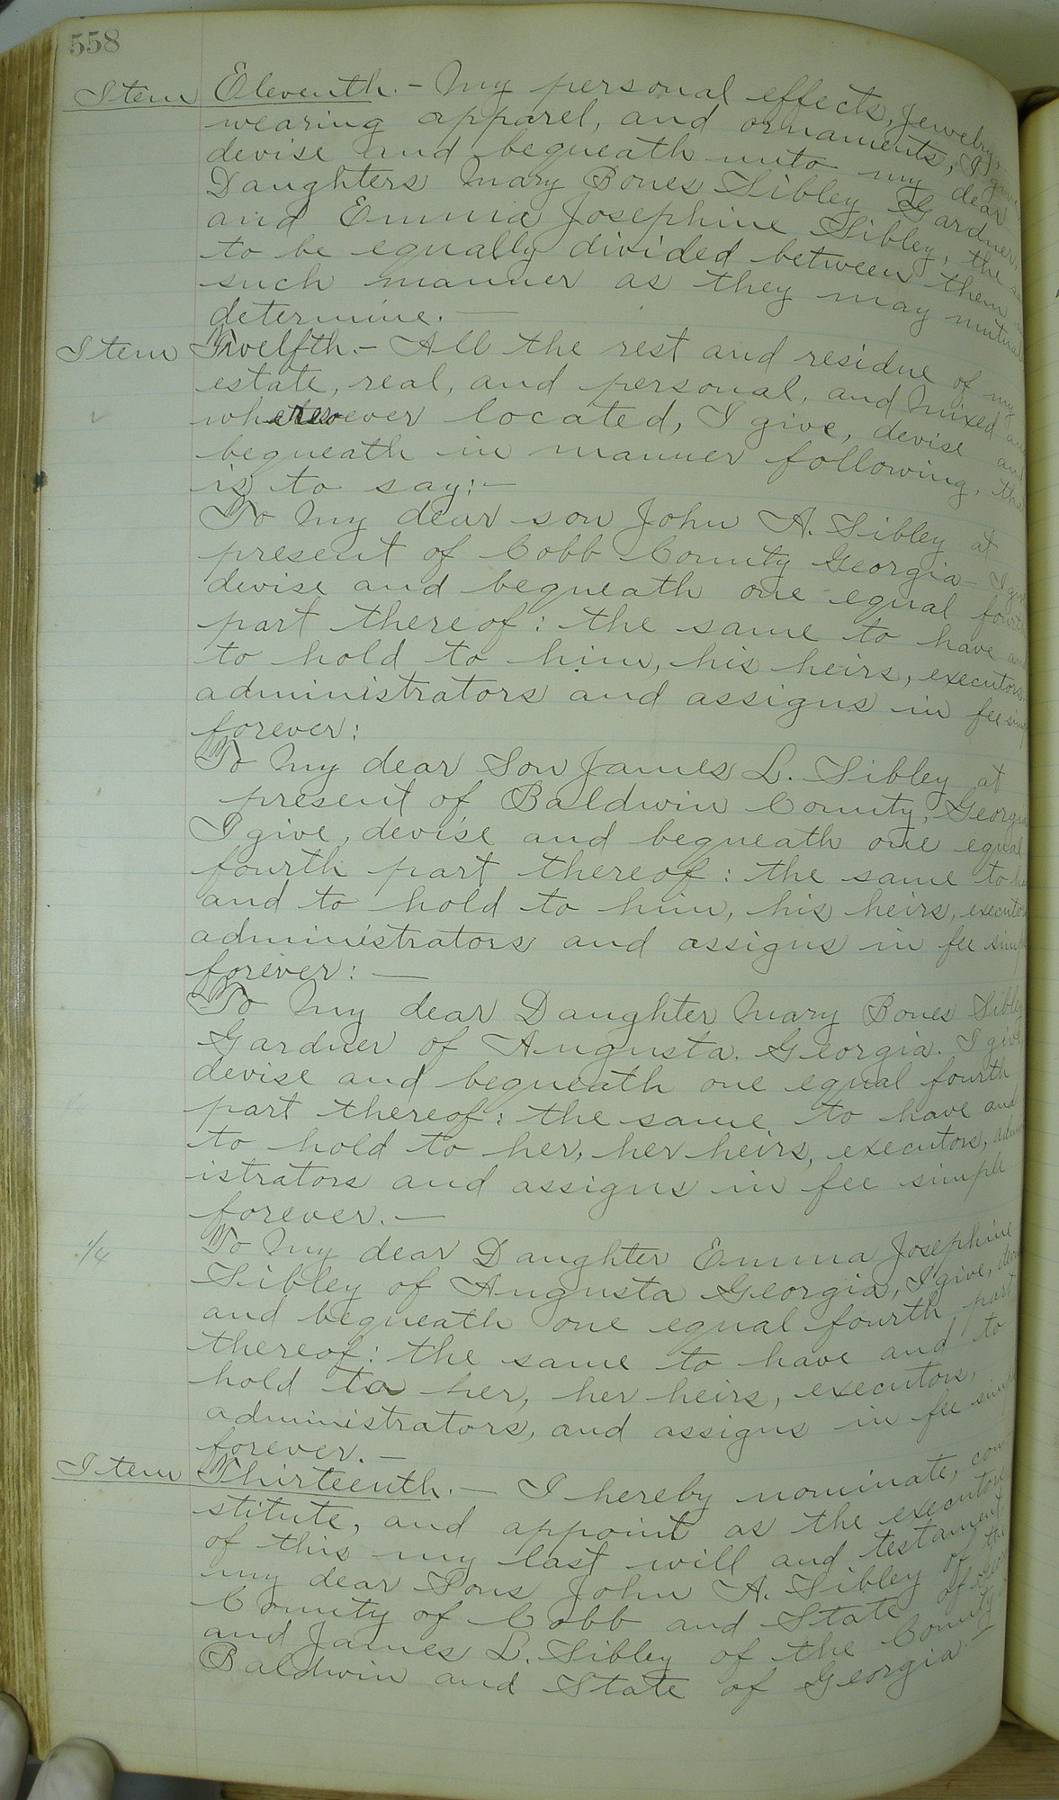 558
Item Eleventh. - My personal effects, Jewelry,
wearing apparel, and ornaments, I give
devise and bequeath unto my dear
Daughters Mary Bones Sibley Gardner,
and Emma Josephine Sibley, the
to be equally divided between them
such manner as they may mutual
determine. —
Item Twelfth. - All the rest and residue of my
estate, real, and personal, and Mixed and
wheresoever located, I give, devise and
bequeath in manner following, that
is to say: —
To My dear son John A. Sibley at
present of Cobb County Georgia - I give
devise and bequeath one equal fourth
part thereof: the same to have and
to hold to him, his heirs, executors
administrators and assigns in fee simple
forever:
To My dear Son James L. Sibley at
present of Baldwin County, Georgia
I give, devise and bequeath one equal
fourth part thereof: the same to have
and to hold to him, his heirs, executors
administrators and assigns in fee simple
forever: —
To My dear Daughter Mary Bones Sibley
Gardner of Augusta. Georgia. I give,
devise and bequeath one equal fourth
part thereof: the same to have and
to hold to her, her heirs, executors, admin
istrators and assigns in fee simple
forever. —
1/4 To My dear Daughter Emma Josephine
Sibley of Augusta Georgia, I give, devise
and bequeath one equal fourth part
thereof: the same to have and to
hold to her, her heirs, executors,
administrators, and assigns in fee simple
forever. —
Item Thirteenth. — I hereby nominate, con
stitute, and appoint as the executors
of this my last will and testament
my dear Sons John A. Sibley of the
County of Cobb and State of
and James L. Sibley of the County
Baldwin and State of Georgia —